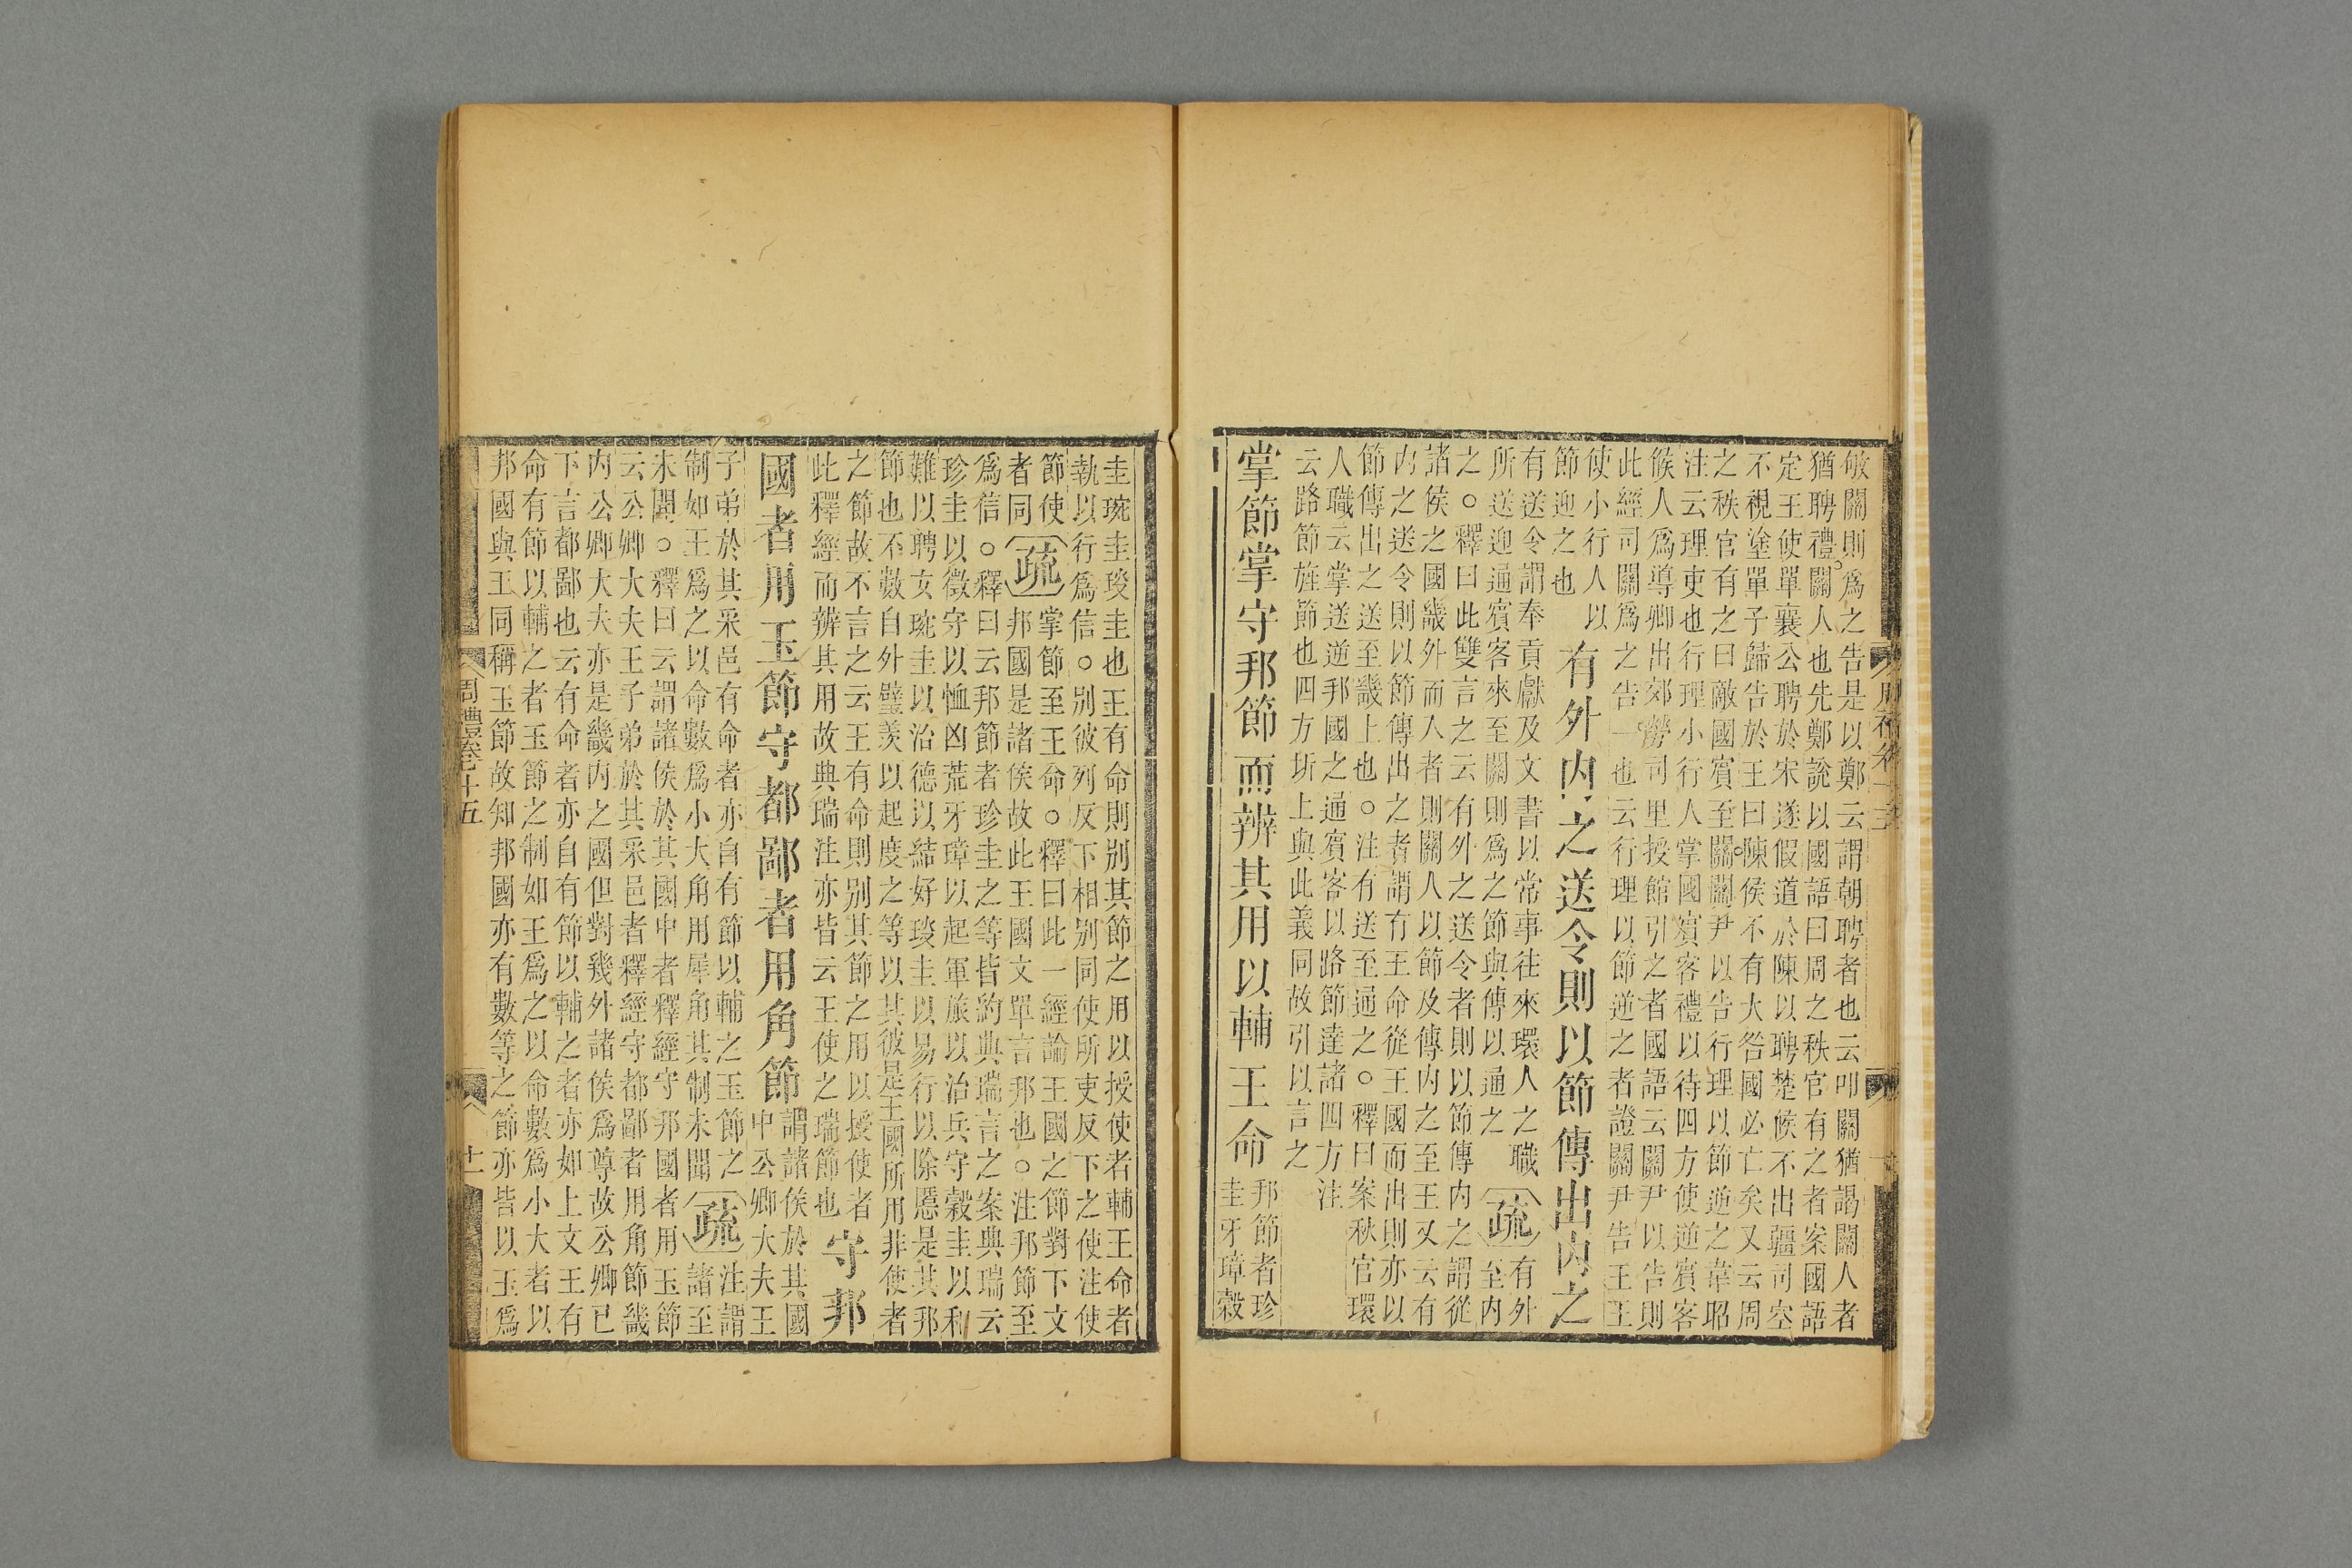 敂關則爲之告是以鄭云謂朝聘者也云叩關猶謁關人者
猶聘禮關人也先鄭說以國語曰周之秩官有之者案國語
定王使單襄公聘於宋遂假道於陳以聘楚候不出疆司空
不視塗單子歸告於王曰陳侯不有大咎國必亡矣又云周
之秩官有之曰敵國賓至關關尹以告行理以節逆之韋昭
注云理吏也行理小行人掌國賓客禮以待四方使逆賓客
候人爲導卿出郊勞司里授館引之者國語云關尹以告則
此經司關爲之告一也云行理以節逆之者證關尹告王王
使小行人以
節迎之也
有外内之送令則以節傳出内之
有送令謂奉貢獻及文書以常事往來環人之職
所送迎通賓客來至關則爲之節與傳以通之
疏
有外
至内
之○釋曰此雙言之云有外之送令者則以節傳内之謂從
諸侯之國畿外而入者則關人以節及傳内之至王又云有
内之送令則以節傳出之者謂有王命從王國而出則亦以
節傳出之送至畿上也○注有送至通之○釋曰案秋官環
人職云掌送逆邦國之通賓客以路節達諸四方注
云路節旌節也四方圻上與此義同故引以言之
掌節掌守邦節而辨其用以輔王命
邦節者珍
圭牙璋穀
圭琬圭琰圭也王有命則别其節之用以授使者輔王命者
執以行爲信○别彼列反下相别同使所吏反下之使注使
節使
者同
疏
掌節至王命○釋曰此一經論王國之節對下文
邦國是諸侯故此王國文單言邦也○注邦節至
爲信○釋曰云邦節者珍圭之等皆約典瑞言之案典瑞云
珍圭以徵守以恤凶荒牙璋以起軍旅以治兵守穀圭以和
難以聘女琬圭以治德以結好琰圭以易行以除慝是其邦
節也不數自外璧羨以起度之等以其彼是王國所用非使者
之節故不言之云王有命則别其節之用以授使者
此釋經而辨其用故典瑞注亦皆云王使之瑞節也
守邦
國者用玉節守都鄙者用角節
謂諸侯於其國
中公卿大夫王
子弟於其采邑有命者亦自有節以輔之玉節之
制如王爲之以命數爲小大角用犀角其制未聞
疏
注謂
諸至
未聞○釋曰云謂諸侯於其國中者釋經守邦國者用玉節
云公卿大夫王子弟於其采邑者釋經守都鄙者用角節畿
内公卿大夫亦是畿内之國但對畿外諸侯爲尊故公卿已
下言都鄙也云有命者亦自有節以輔之者亦如上文王有
命有節以輔之者玉節之制如王爲之以命數爲小大者以
邦國與王同稱玉節故知邦國亦有數等之節亦皆以玉爲
周禮卷十五
十一